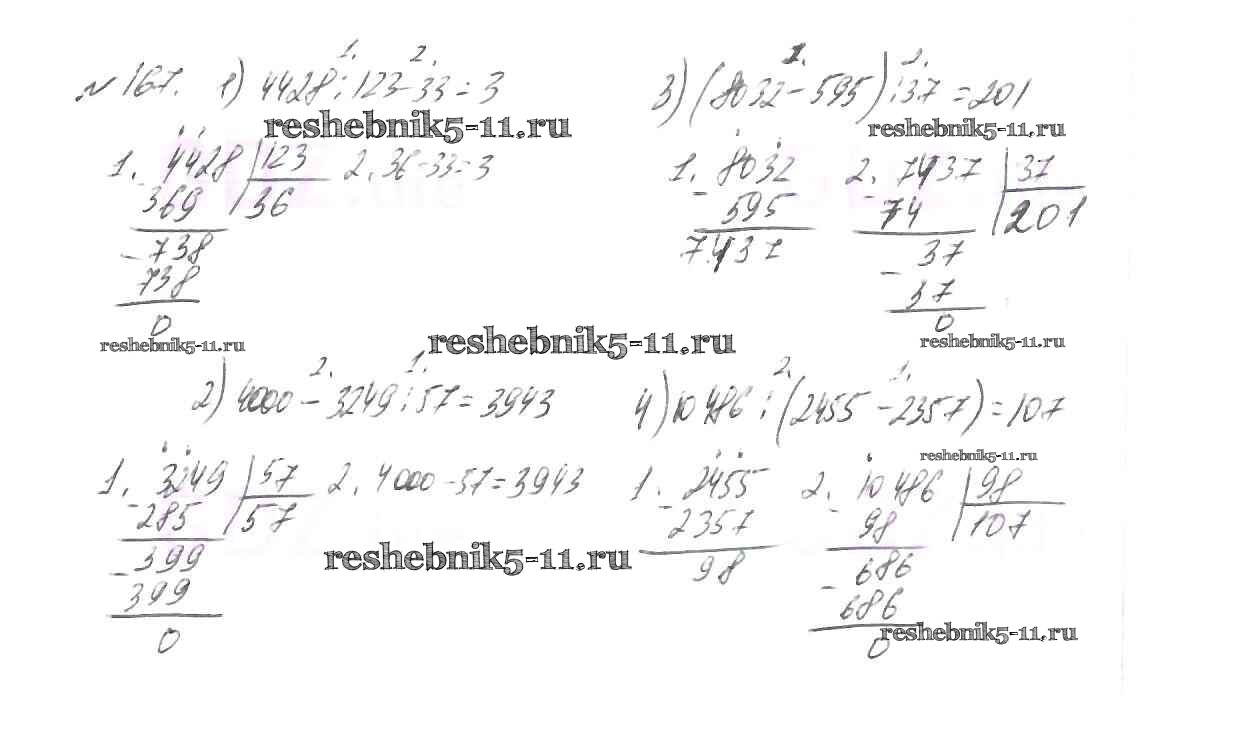 № 167. 1) 4428 : 123 - 33 = 3
1. 2.
reshebnik5-11.ru
1. 4428 | 123
- 369 | 36
- 738
738
0
2. 36 - 33 = 3
reshebnik5-11.ru
3) (8032 - 595) : 37 = 201
1. 2.
reshebnik5-11.ru
1. 8032
- 595
7437
2. 7437 | 37
- 74 | 201
- 37
37
0
reshebnik5-11.ru
reshebnik5-11.ru
2) 4000 - 3249 : 57 = 3943
2. 1.
1. 3249 | 57
- 285 | 57
- 399
399
0
2. 4000 - 57 = 3943
reshebnik5-11.ru
4) 10 486 : (2455 - 2357) = 107
2. 1.
reshebnik5-11.ru
1. 2455
- 2357
98
2. 10 486 | 98
- 98 | 107
- 686
686
0
reshebnik5-11.ru